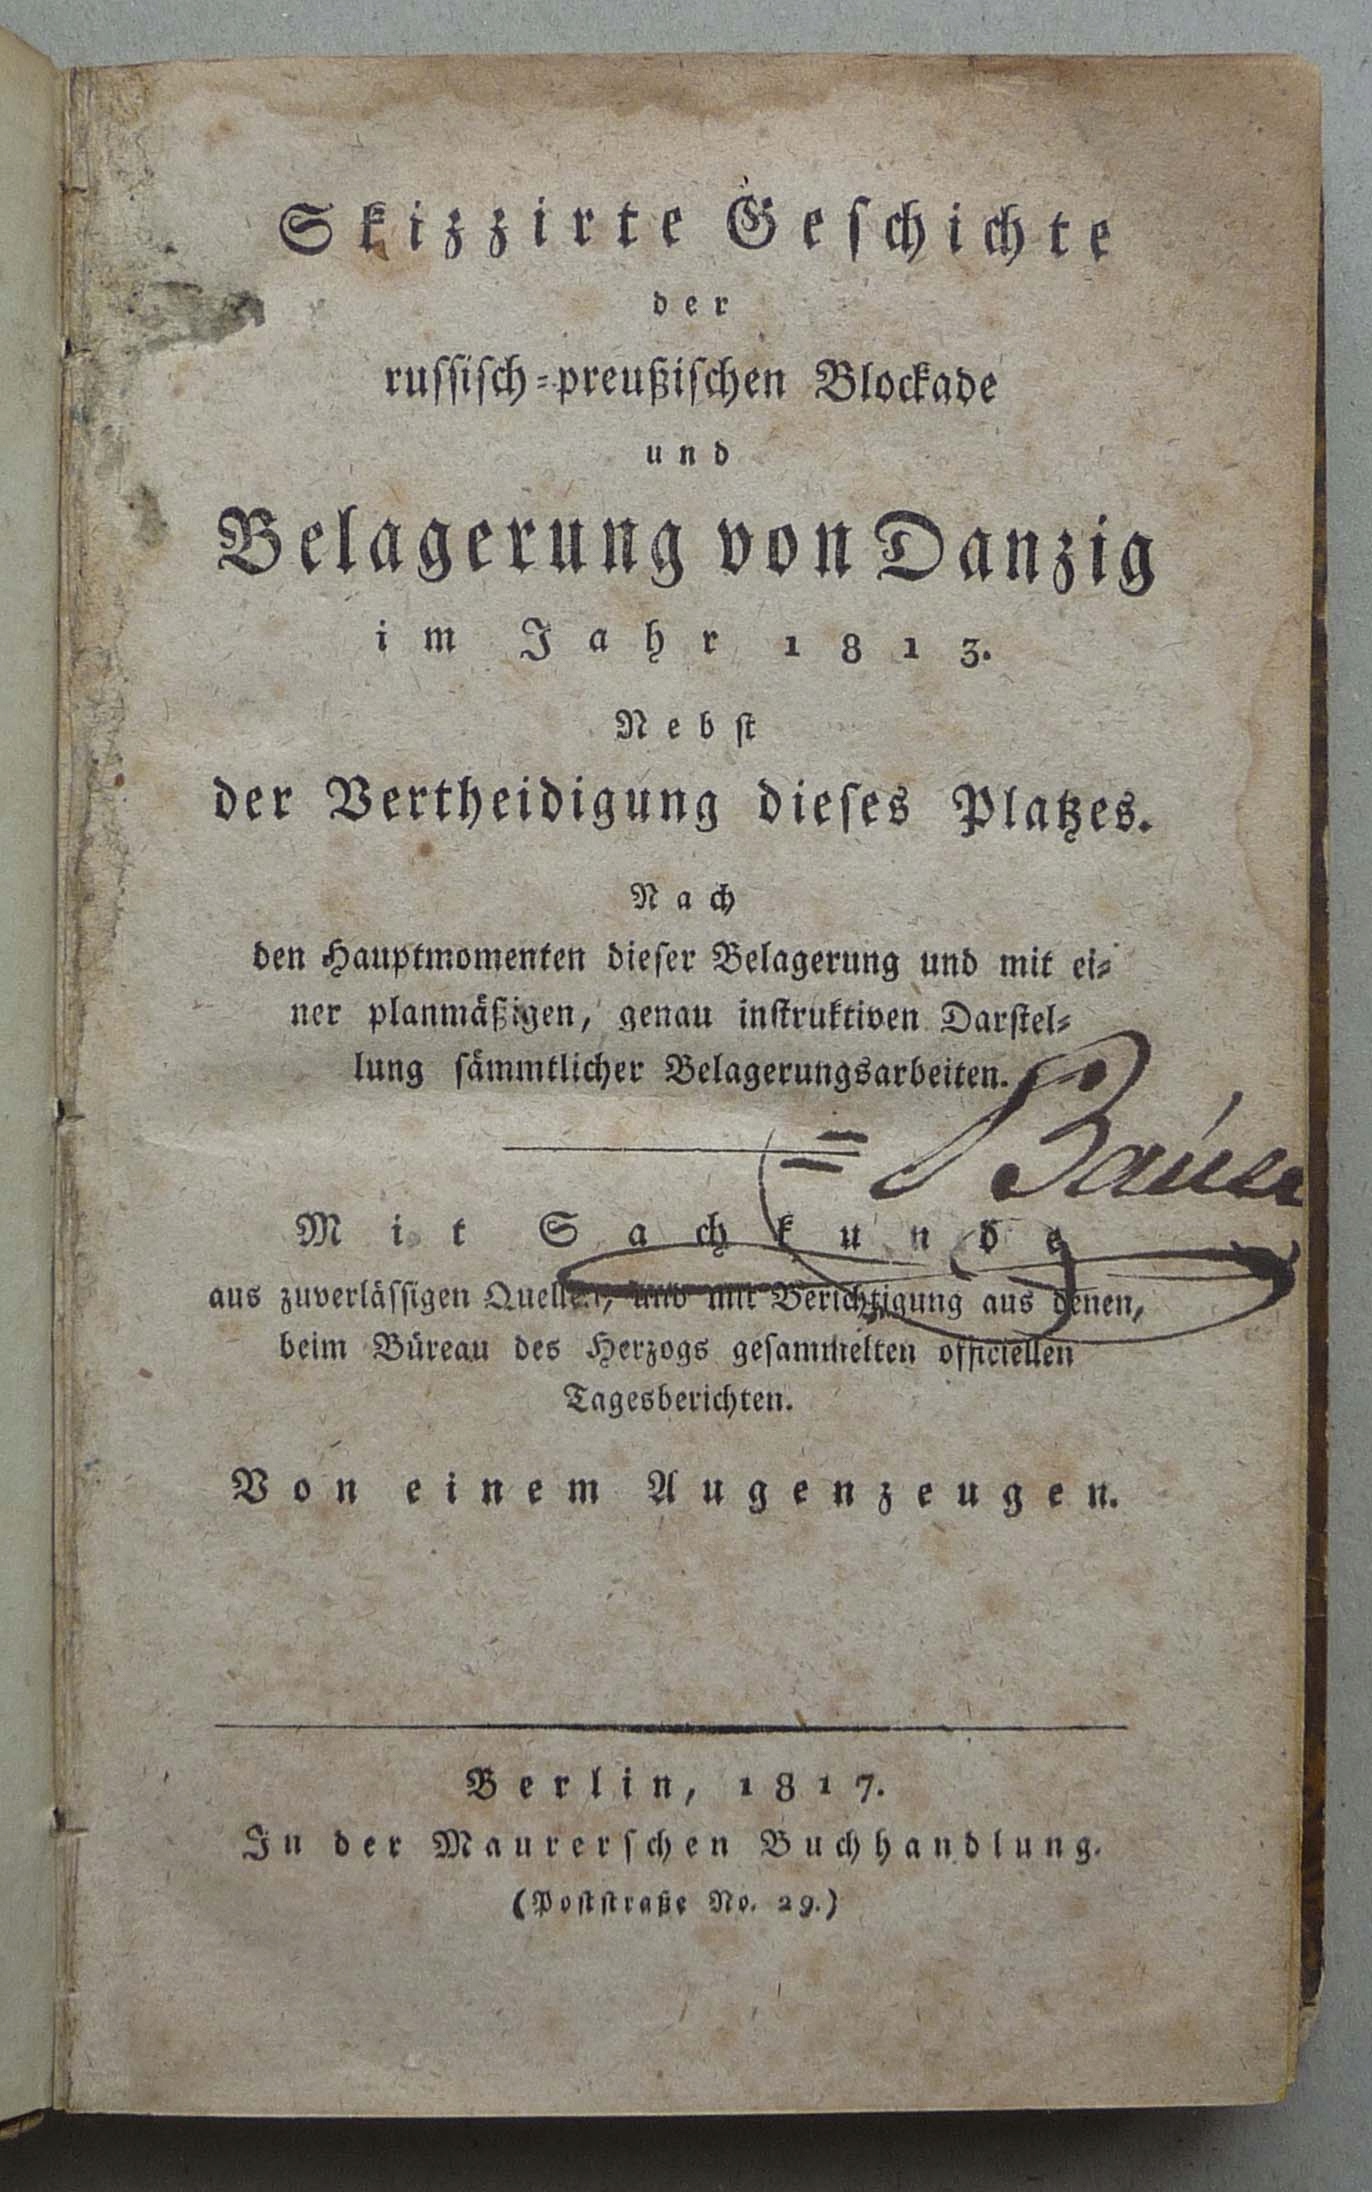 Skizzirte Geschichte
der
russisch-preußischen Blockade
und
Belagerung von Danzig
im Jahr 1813.
Nebst
der Vertheidigung dieses Platzes.
Nach
den Hauptmomenten dieser Belagerung und mit ei-
ner planmäßigen, genau instruktiven Darstel-
lung sämmtlicher Belagerungsarbeiten.
Mit Sachkunde
aus zuverlässigen Quellen, und mit Berichtigung aus denen,
beim Büreau des Herzogs gesammelten officiellen
Tagesberichten.
Von einem Augenzeugen.
Berlin, 1817.
In der Maurerschen Buchhandlung.
(Poststraße No. 29.)